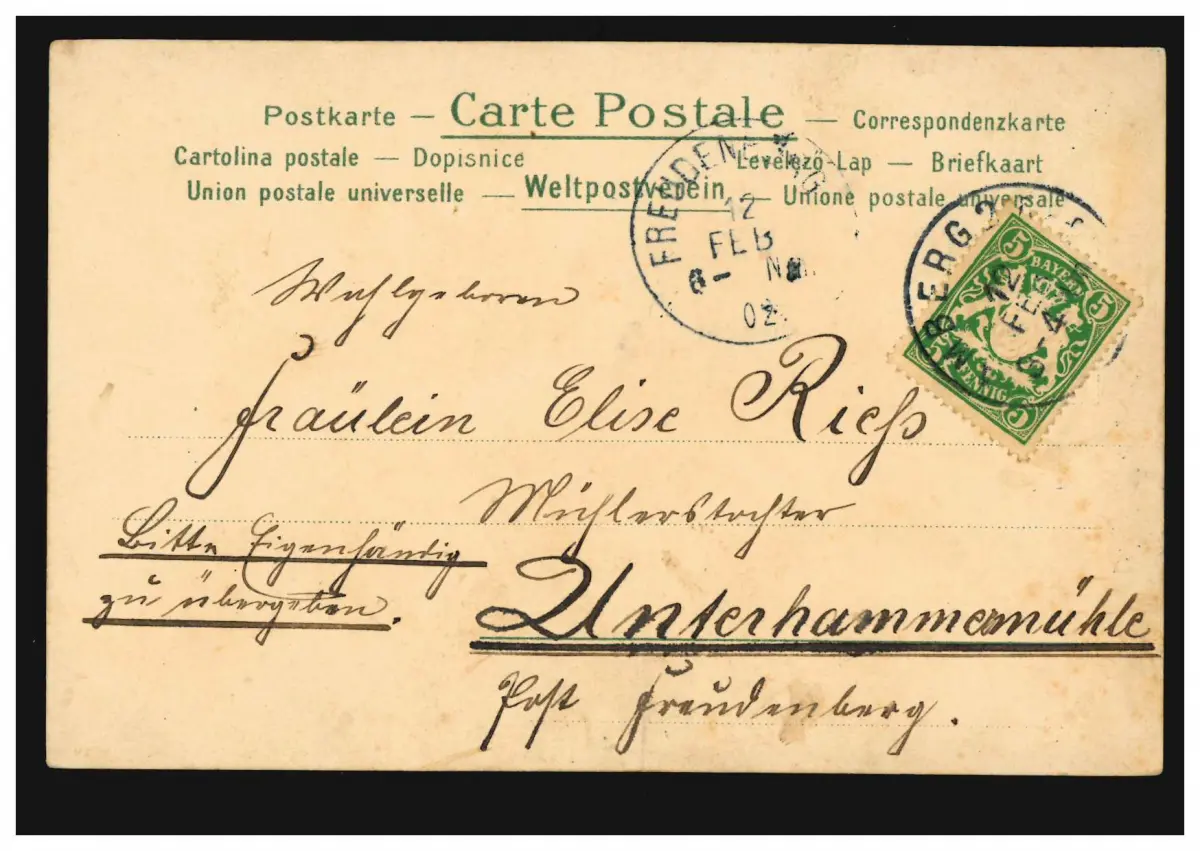 Postkarte — Carte Postale — Correspondenzkarte
Cartolina postale — Dopisnice Levelező-Lap — Briefkaart
Union postale universelle — Weltpostverein — Unione postale universale
FREUDENBERG
12
FEB
6 – Nm.
02
MBERG 2
12
FEB
5
5
5
BAYERN
PFENNIG
Wohlgeboren
Fräulein Elise Rieß
Mühlerstochter
Bitte Eigenhändig
zu übergeben.
Unterhammermühle
Post Freudenberg.